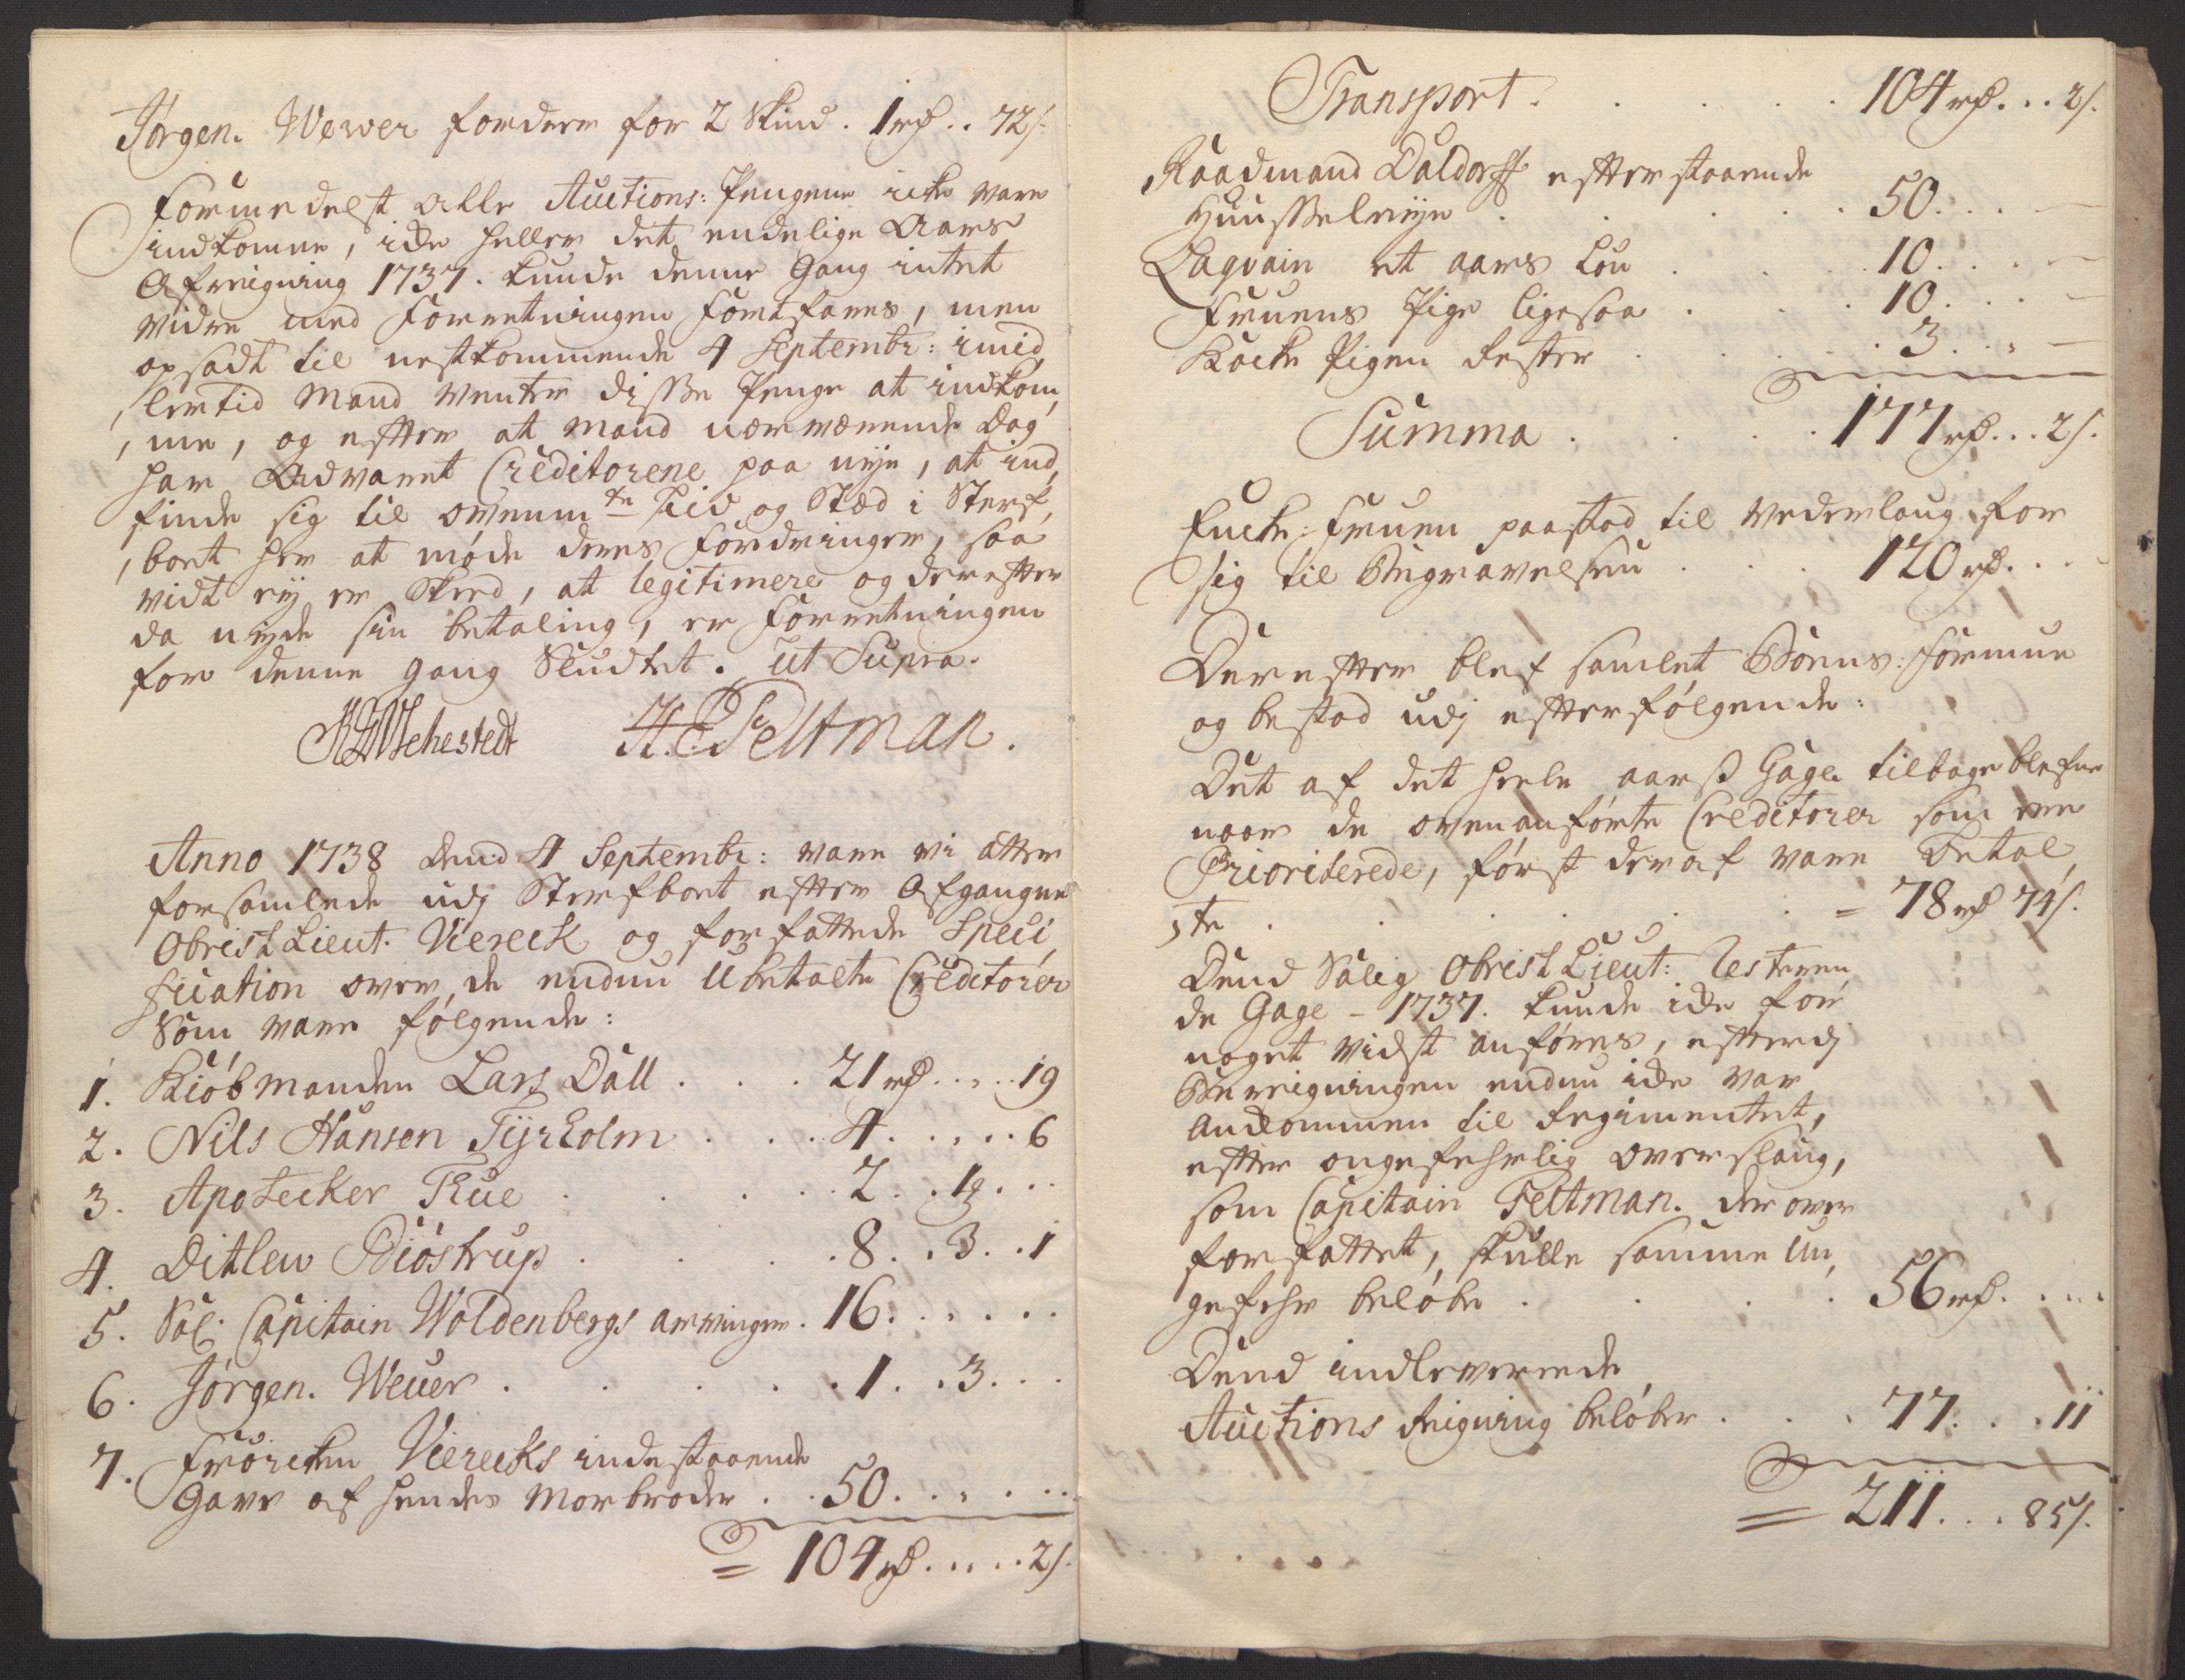 Jørgen. Wewer fordrer for 2 Skind . 1 rd .. 72 s.
Formedelst alle Auctions: Pengene icke vare
indkomne, icke heller det endelige Aars
Afreigning 1737. kunde denne Gang intet
vidre med Forretningen fortfares, men
opsadt til nestkommende 4 Septembr: imid,
,lertid Mand venter disse Penge at indkom,
,me, og efter at Mand nærværende Dag
har Advaret Creditorene paa nye, at ind,
finde sig til ovenm te Tid og Stæd i Sterf,
,boet her at møde deres Fordringer, saa
vidt ey er Skeed, at legitimere og derefter
da nyde sin betaling, er Forretningen
for denne gang Sludtet. Ut Supra.
Sehestedt H. C. Feltman.
Anno 1738 dend 4 Septembr: vare vi atter
forsamlede udj Sterfboet efter Afgangne
ObristLieut. Viereck og forfattede Speci
fication over de endnu Ubetalte Creditorer
Som vare følgende:
1. Kiøbmanden Lars Dall . . . 21 rd . . . . 19
2. Nils Hansen Tyrholm . . . 4 . . . . . 6
3. Apotecker Rue . . . . 2 . . 19 . . .
4. Ditlew Biöstrup . . . . 8 . . 3 . . 1
5. Sal. Capitain Woldenbergs arvinger . 16 . . . . . .
6. Jørgen. Wever . . . . . 1 . . 3 . . .
7. Frøicken Vierecks indestaaende
Gave af hendes Morbroder . . 50 . . . . . .
= 104 rd . . . . . 2 s.
Transport . . . . . 104 rd . . . 2 s.
Raadmand Daldorff efterstaaende
Huusseleye . . . . . 50 . . . —
Laqvain et aars Løn . . . 10 . . . —
Fruens Pige ligesaa . . . 10 . . . —
Kocke Pigen Rester . . . . . 3 . . . —
Summa . . . . 177 rd . . . 2 s.
Encke: Fruen paastod til Vederlaug for
sig til Begravelsen . . . 120 rd . . .
Derefter blef samlet Boens: Formue
og bestod udj efterfølgende:
Det af det heele aarß Gage tilbageblefne
naar de ovenanførte Creditorer som ere
Prioriterede, først deraf vare Betal,
,te . . . . . . = 78 rd 74 s.
Dend Salig ObristLieut: Resteren,
de Gage - 1737. kunde icke for
noget vidst anføres, efterdj
Bereigningen endnu icke var
Ankommen til Regimentet,
efter ongefehrlig overslaug,
som Capitain Feltman. derover
forfattet, skulle samme Un,
gefehr beløbe . . . . 56 rd . . . .
Dend indleverede
Auctions Reigning beløber . . . 77 . . . 11
= 211 . . . 85 s.